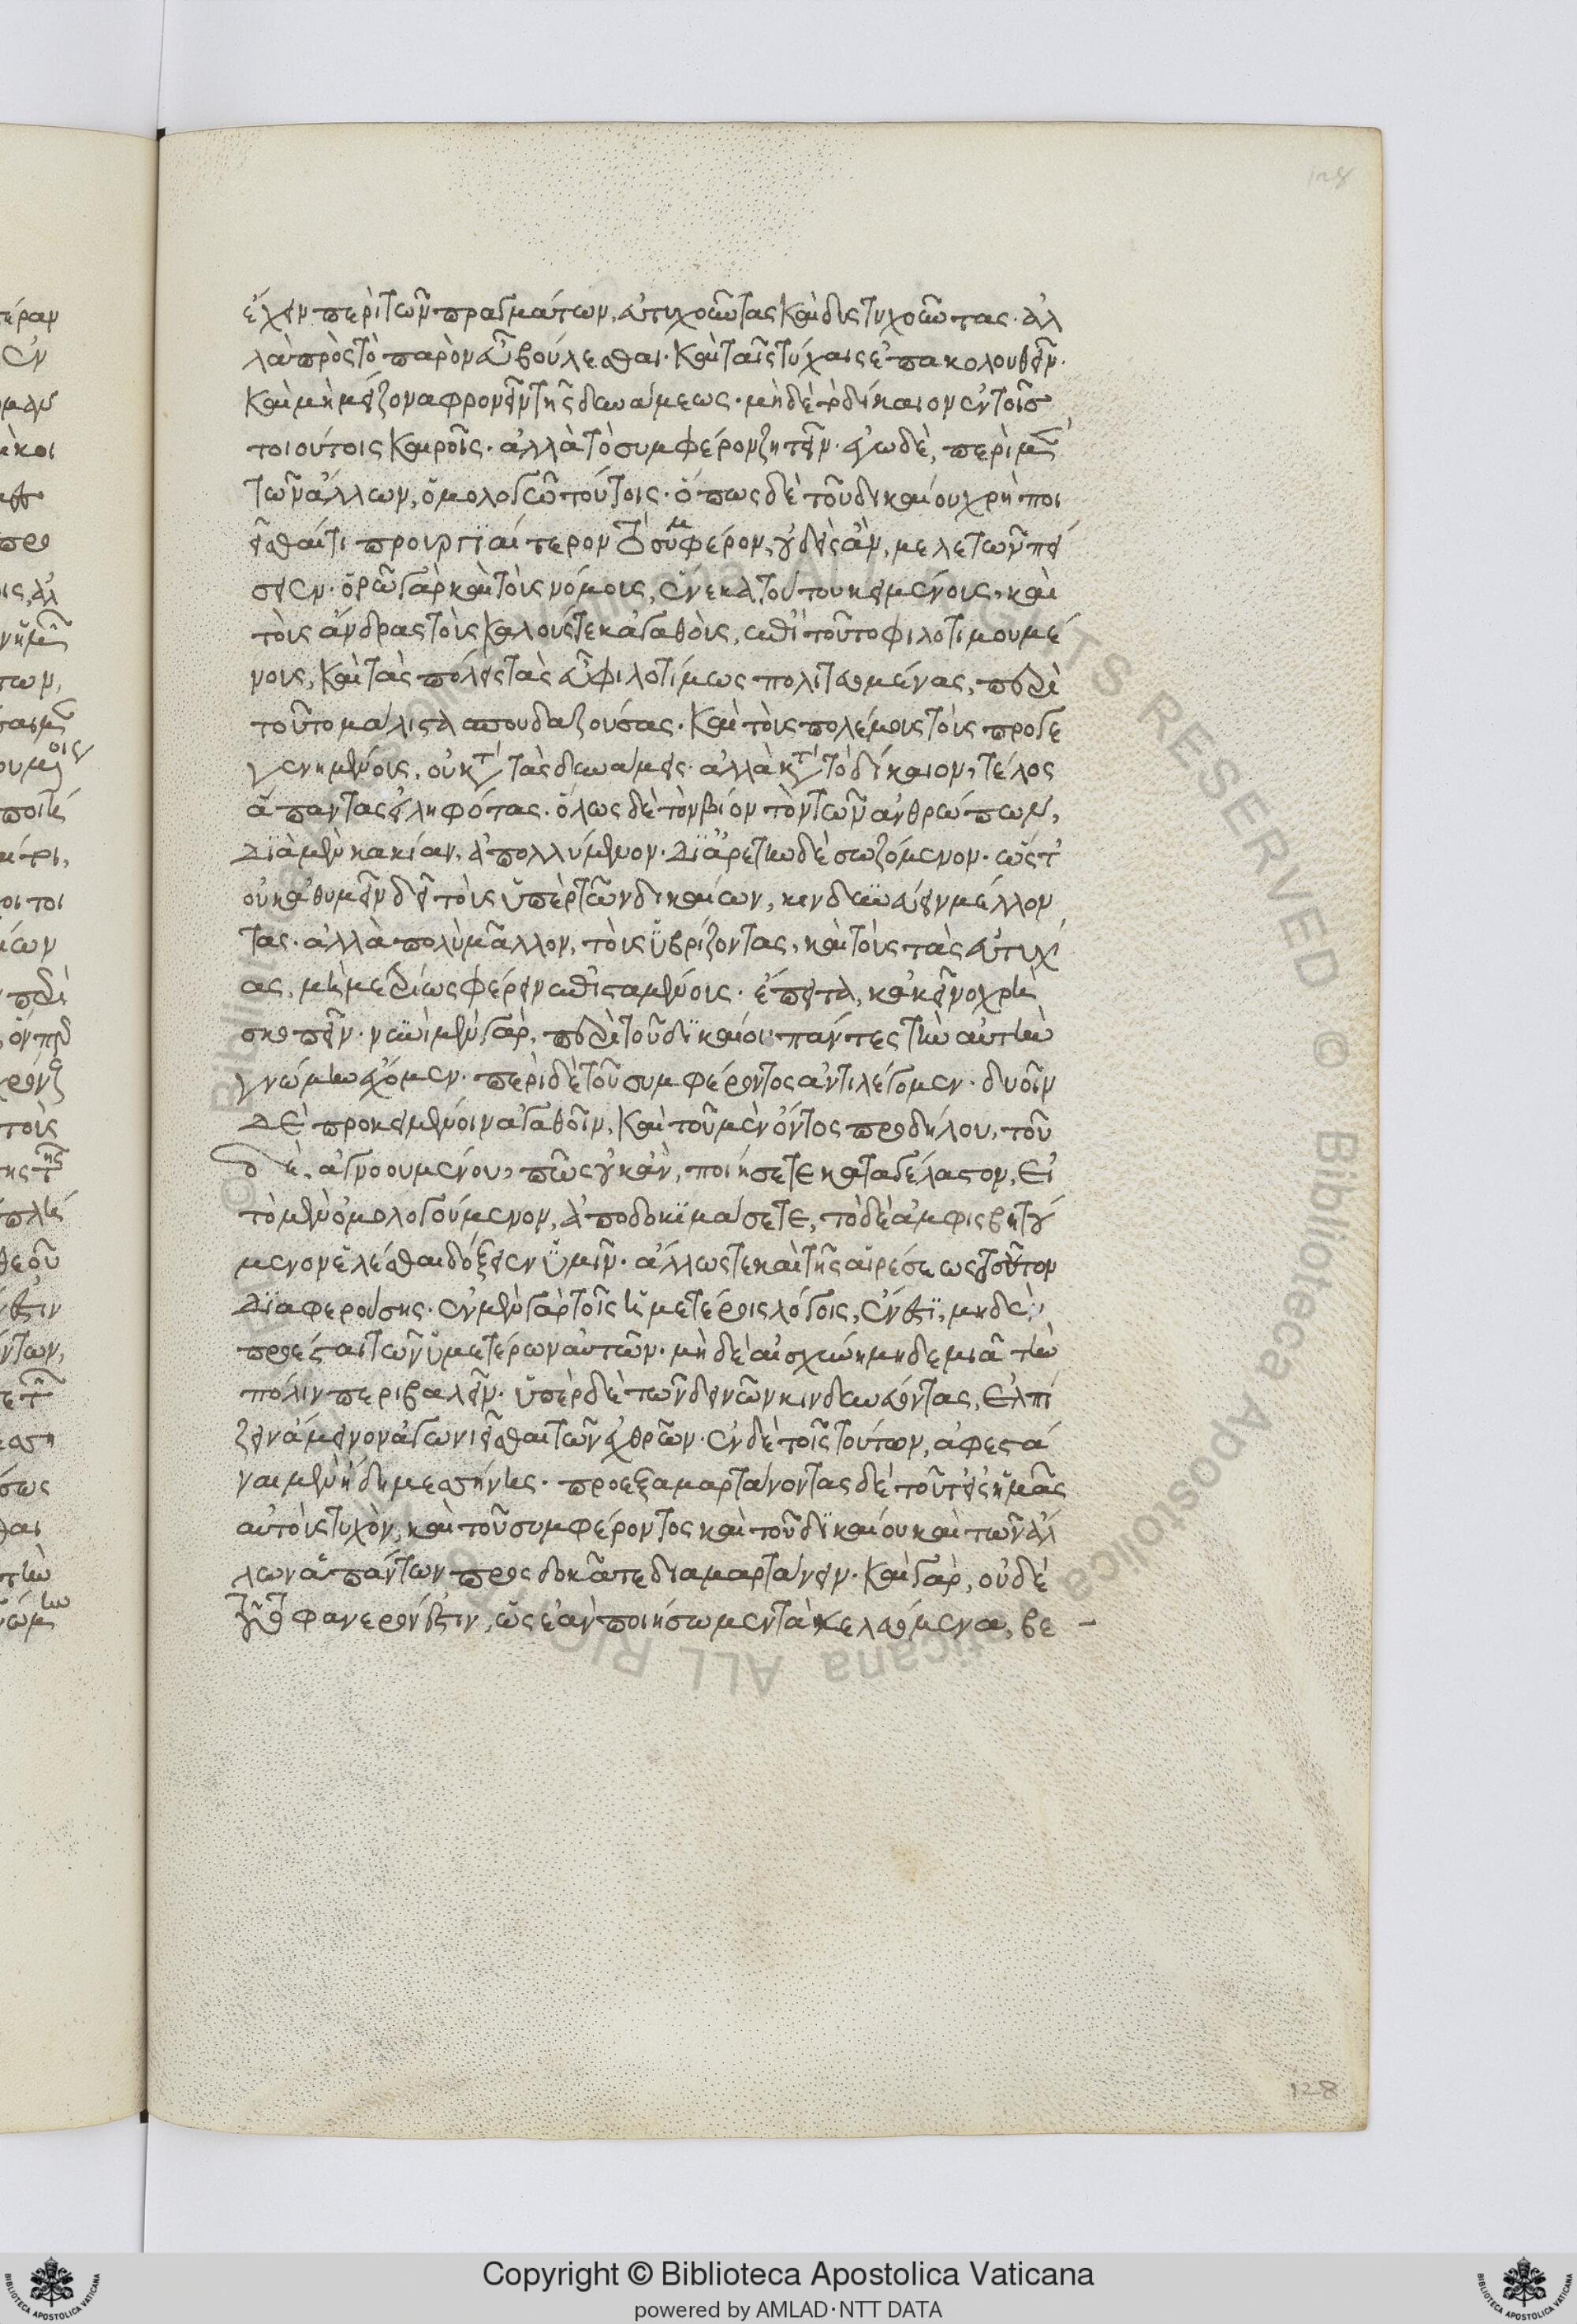 ἔχειν περὶ τῶν πραγμάτων, εὐτυχοῦντας καὶ δυστυχοῦντας· ἀλ
λὰ πρὸς τὸ παρὸν εὖ βούλεσθαι· καὶ ταῖς τύχαις ἐπακολουθεῖν·
καὶ μὴ μείζονα φρονεῖν τῆς δυνάμεως· μὴ δὲ τὸ δίκαιον ἐν τοῖς
τοιούτοις καιροῖς· ἀλλὰ τὸ συμφέρον ζητεῖν· ἐγὼ δὲ, περὶ μὲν
τῶν ἄλλων, ὁμολογῶ τούτοις· ὅπως δὲ τοῦ δικαίου χρὴ ποι
εῖσθαί τι προυργιαίτερον τὸ συμφέρον, οὐδεὶς ἄν, με λέγων πεί
σειεν· ὁρῶ γὰρ καὶ τοὺς νόμους, ἕνεκα τούτου κειμένους, καὶ
τοὺς ἄνδρας τοὺς καλούς τε κἀγαθοὺς, ἐπὶ τοῦτο φιλοτιμουμέ
νους, καὶ τὰς πόλεις τὰς εὖ φιλοτίμως πολιτευομένας, περὶ
τοῦτο μάλιστα σπουδαζούσας· καὶ τοὺς πολέμους τοὺς προγε
γενημένους, οὐ κατὰ τὰς δυνάμεις· ἀλλὰ κατὰ τὸ δίκαιον, τέλος
ἅπαντας εἰληφότας· ὅλως δὲ τὸν βίον τὸν τῶν ἀνθρώπων,
διὰ μὲν κακίαν, ἀπολλύμενον· δι' ἀρετὴν δὲ σωζόμενον· ὥστ'
οὐκ ἀθυμεῖν δεῖ τοὺς ὑπὲρ τῶν δικαίων, κινδυνεύειν μέλλον
τας· ἀλλὰ πολὺ μᾶλλον, τοὺς ὑβρίζοντας, καὶ τοὺς τὰς εὐτυχί
ας, μὴ μετρίως φέρειν ἐπισταμένους· ἔπειτα, κἀκεῖνο χρὴ
σκοπεῖν· νυνὶ μὲν γὰρ, περὶ τοῦ δικαίου πάντες τὴν αὐτὴν
γνώμην ἔχομεν· περὶ δὲ τοῦ συμφέροντος ἀντιλέγομεν· δυοῖν
δὲ προκειμένοιν ἀγαθοῖν, καὶ τοῦ μὲν ὄντος προδήλου, τοῦ
δὲ, ἀγνοουμένου, πῶς οὐκ ἂν, ποιήσετε καταγέλαστον, εἰ
τὸ μὲν ὁμολογούμενον, ἀποδοκιμάσετε, τὸ δὲ ἀμφισβητού
μενον ἑλέσθαι δόξειεν ὑμῖν· ἄλλως τε καὶ τῆς αἱρέσεως τοσοῦτον
διαφερούσης· ἐν μὲν γὰρ τοῖς ἡμετέροις λόγοις, ἔνεστι, μηδὲν
προέσθαι τῶν ὑμετέρων αὐτῶν· μὴ δὲ αἰσχύνῃ μηδεμιᾷ τὴν
πόλιν περιβαλεῖν· ὑπὲρ δὲ τῶν δεινῶν κινδυνεύοντας, ἐλπί
ζειν ἄμεινον ἀγωνιεῖσθαι τῶν ἐχθρῶν· ἐν δὲ τοῖς τούτων, ἀφεστά
ναι μὲν ἤδη μεσήνης· προεξαμαρτάνοντας δὲ τοῦτ' εἰς ἡμᾶς
αὐτοὺς τυχὸν, καὶ τοῦ συμφέροντος καὶ τοῦ δικαίου καὶ τῶν ἄλ
λων ἁπάντων προσδοκᾶτε διαμαρτάνειν· καὶ γὰρ, οὐδὲ
τοῦτο φανερόν ἐστιν, ὡς ἐὰν ποιήσωμεν τὰ κελευόμενα, βε –
128
128